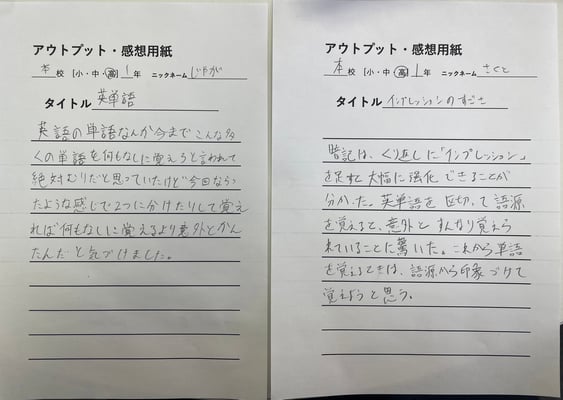 アウトプット・感想用紙
本 校 [小・中・高] 1 年 ニックネーム じゃが
タイトル 英単語
英語の単語なんか今までこんな多
くの単語を何もなしに覚えろと言われて
絶対むりだと思っていたけど今回なら
たような感じで2つに分けたりして覚え
れば何もなしに覚えるより意外とかん
たんだと気づけました。
アウトプット・感想用紙
本 校 [小・中・高] 1 年 ニックネーム さくと
タイトル インプレッションのすごさ
暗記は、くり返しに「インプレッション」
を足すと大幅に強化できることが
分かった。英単語を区切って語源
を覚えると、意外とすんなり覚えら
れていることに驚いた。これから単語
を覚えるときは、語源から印象づけて
覚えようと思う。